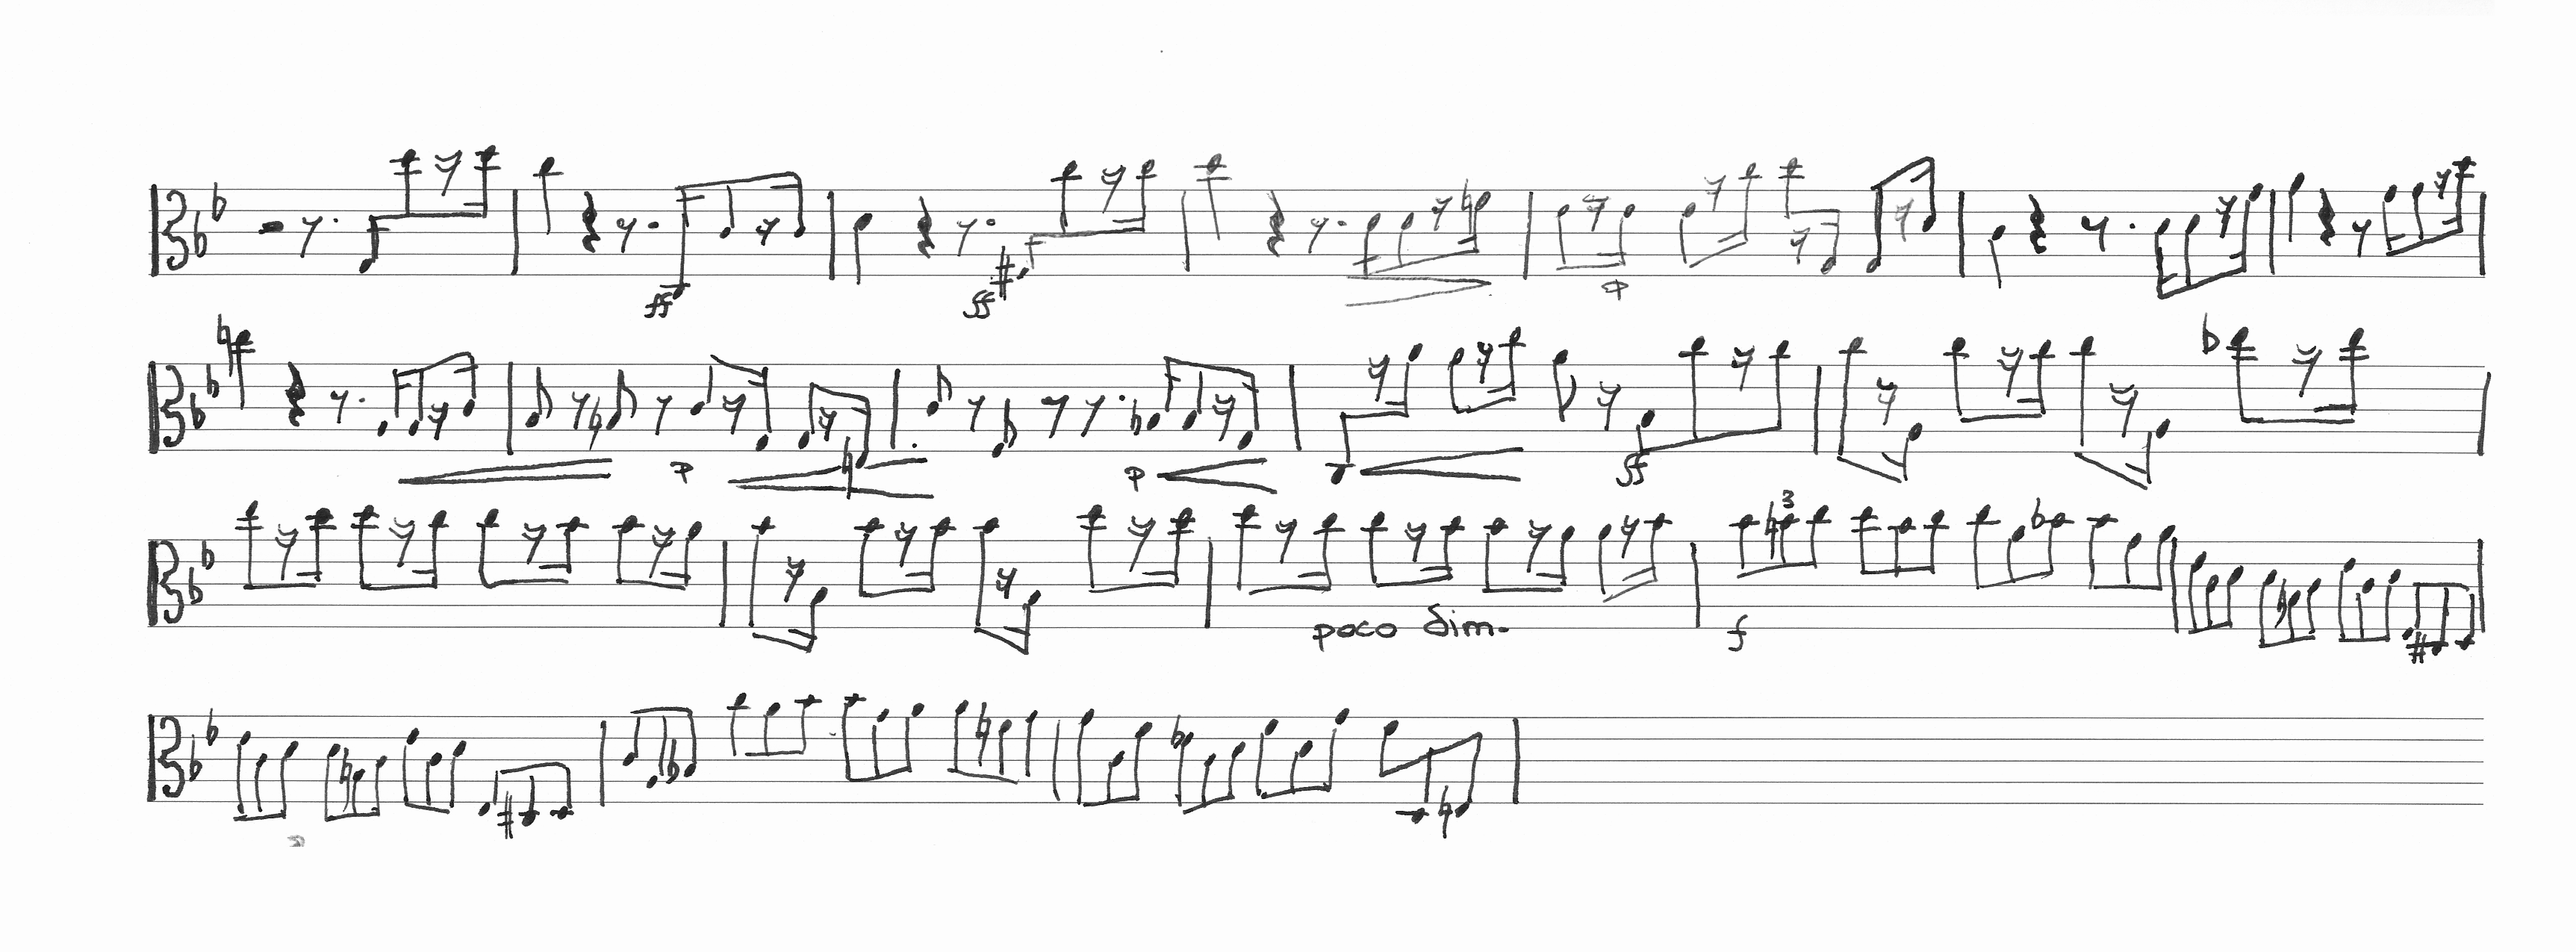 ff ff p
p p ff
poco dim. f 3